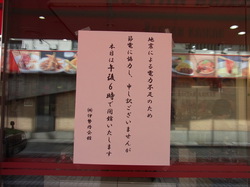 地震による電力不足のため
節電に協力し、申し訳ございませんが
本日は午後6時で閉館いたします
㈱伊勢丹会館